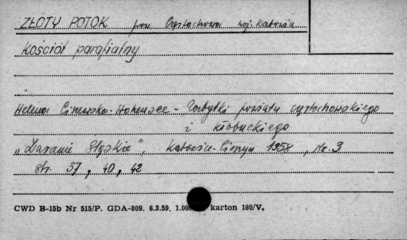 ZŁOTY POTOK pow. Częstochowa woj. Katowice
Kościół parafialny
Helena Cinowska-Hohensee - Zabytki powiatu częstochowskiego
i kłobuckiego
„Zaranie Śląskie", Katowice-Cieszyn 1958, Nr. 3
str. 37, 40, 42
CWD B-15b Nr 515/P. GDA-809. 6.3.59. karton 180/V.